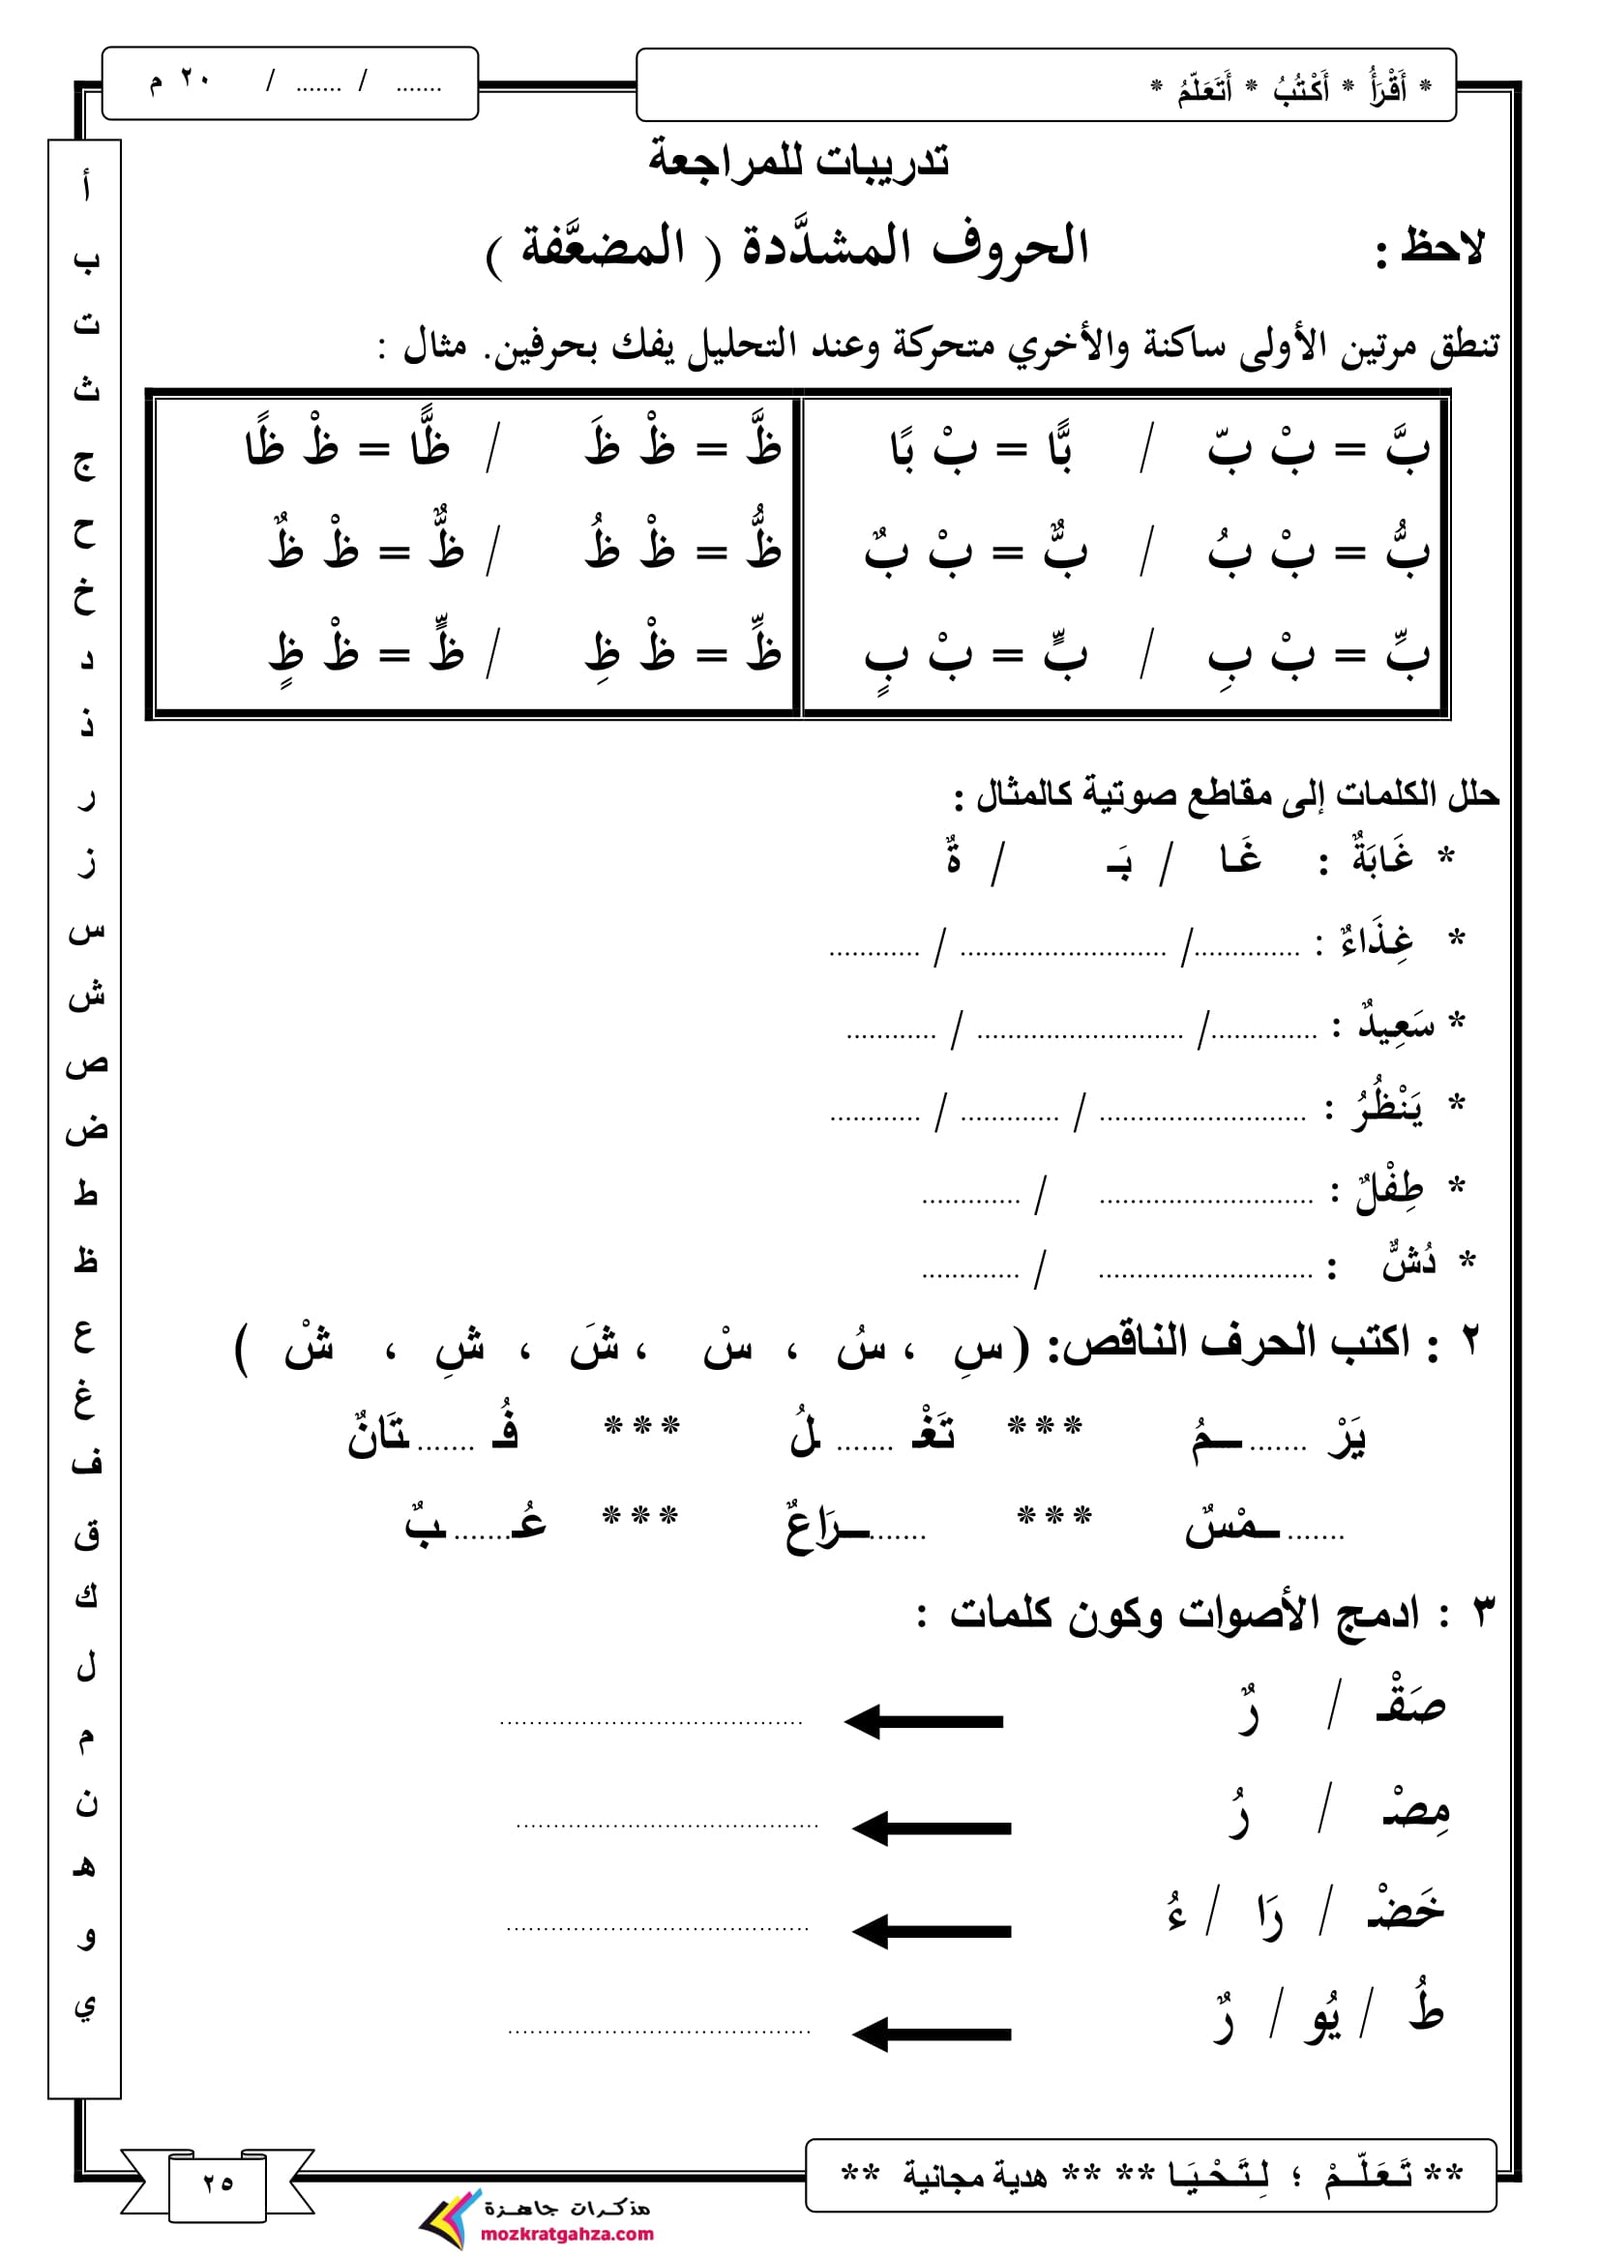 * أَقْرَأُ * أَكْتُبُ * أَتَعَلَّمُ *
....... / ....... / ٢٠ م
تدريبات للمراجعة
لاحظ : الحروف المشدَّدة ( المضعَّفة )
تنطق مرتين الأولى ساكنة والأخري متحركة وعند التحليل يفك بحرفين. مثال :
بَّ = بْ بّ / بًّا = بْ بًا
بُّ = بْ بُ / بٌّ = بْ بٌ
بِّ = بْ بِ / بٍّ = بْ بٍ
ظَّ = ظْ ظَ / ظًّا = ظْ ظًا
ظُّ = ظْ ظُ / ظٌّ = ظْ ظٌ
ظِّ = ظْ ظِ / ظٍّ = ظْ ظٍ
حلل الكلمات إلى مقاطع صوتية كالمثال :
* غَابَةٌ : غَـا / بَـ / ةٌ
* غِذَاءٌ : .............. / ........................... / ............
* سَعِيدٌ : .............. / ........................... / ............
* يَنْظُرُ : ........................... / ............. / ............
* طِفْلٌ : ............................ / .............
* دُشٌّ : ............................ / .............
٢ : اكتب الحرف الناقص: ( سِ ، سُ ، سْ ، شَ ، شِ ، شْ )
يَرْ ....... ـمُ *** تَغْـ ....... ـلُ *** فُـ ....... ـتَانٌ
....... ـمْسٌ *** ....... ـرَاعٌ *** عُـ ....... ـبٌ
٣ : ادمج الأصوات وكون كلمات :
صَقْـ / رٌ ........................................
مِصْـ / رُ ........................................
خَضْـ / رَا / ءُ ........................................
طُ / يُو / رٌ ........................................
أ
ب
ت
ث
ج
ح
خ
د
ذ
ر
ز
س
ش
ص
ض
ط
ظ
ع
غ
ف
ق
ك
ل
م
ن
هـ
و
ي
** تَـعَـلَّـمْ ؛ لِـتَـحْـيَـا ** ** هدية مجانية **
٢٥
مذكرات جاهزة
mozkratgahza.com